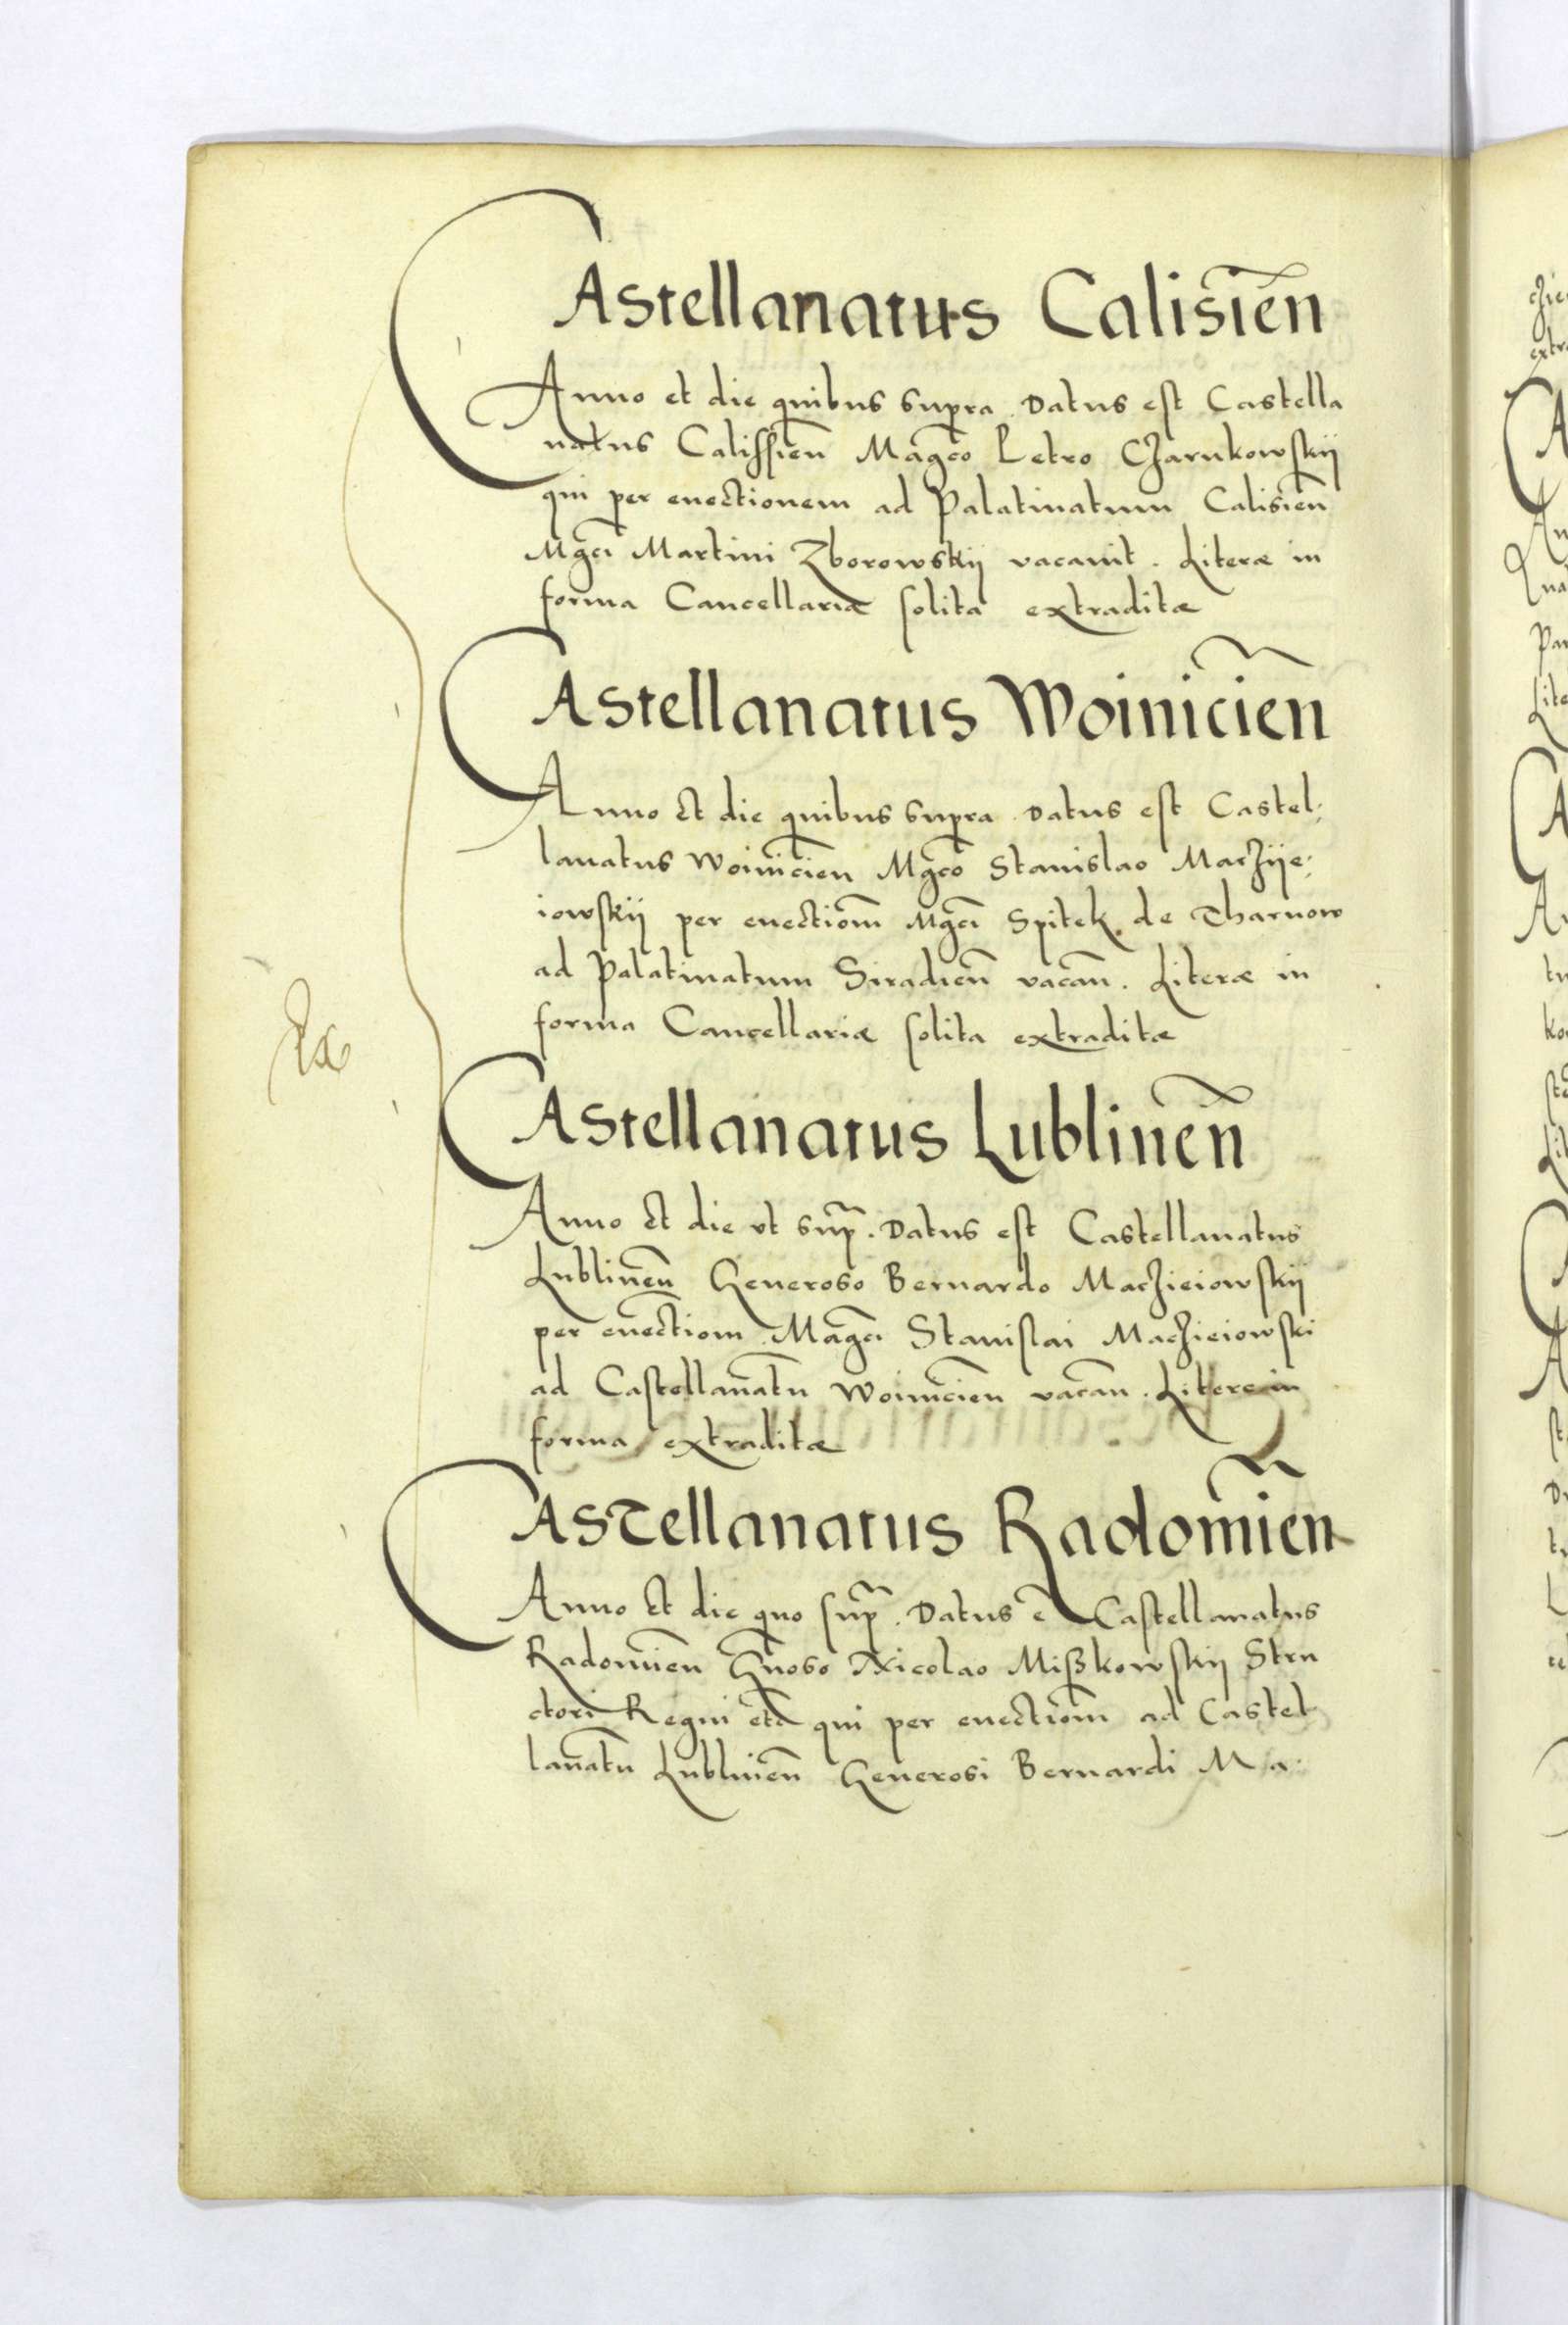 Castellanatus Calisien̄
Anno et die quibus supra. Datus est Castella
natus Calissien̄ Magco Petro Charnkowskij
qui per euectionem ad Palatinatum Calisien̄
Mgci Martini Zborowskij vacauit. Literæ in
forma Cancellariæ solita extraditæ
Castellanatus Woinicien̄
Anno et die quibus supra. Datus est Castel,
lanatus Woinicien̄ Mgco Stanislao Maczije,
iowskij per euectiom̄ Mgci Spitek de Tharnow
ad Palatinatum Siradien̄ vacan̄. Literæ in
forma Cancellariæ solita extraditæ
Castellanatus Lublinen̄
Anno et die vt sup̄. Datus est Castellanatus
Lublinen̄ Generoso Bernardo Maczieiowskij
per euectiom̄ Magci Stanislai Maczieiowski
ad Castellanatū Woinicien̄ vacan̄. Litere in
forma extraditæ
Castellanatus Radomien̄
Anno et die quo sup̄. Datus ē Castellanatus
Radomien̄ Gn̄oso Nicolao Mißkowskij Stru
ctori Regni etc̄ qui per euectiom̄ ad Castel
lanatū Lublinen̄ Generosi Bernardi Ma